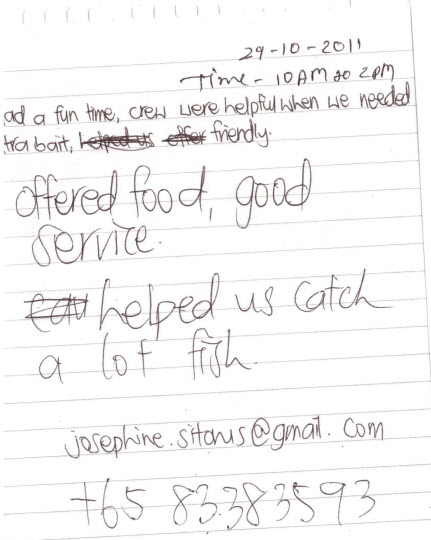 29-10-2011
Time - 10AM to 2PM
ad a fun time, crew were helpful when we needed
tra bait, helped us offer friendly.
offered food, good
service.
helped us catch
a lot fish.
josephine.sitorus@gmail.com
+65 83383593